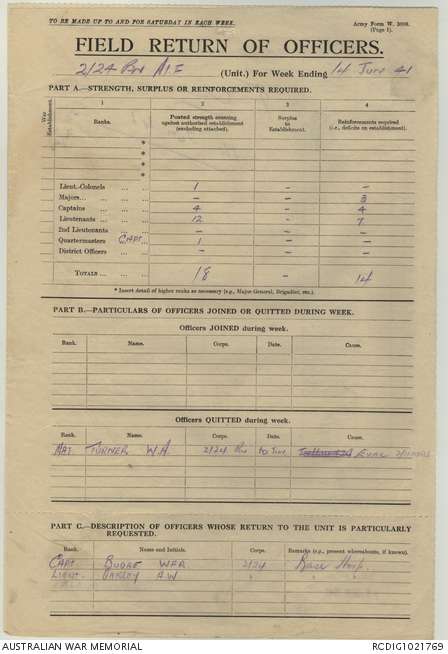 TO BE MADE UP TO AND FOR SATURDAY IN EACH WEEK.
Army Form W. 3008.
(Page 1).
FIELD RETURN OF OFFICERS.
2/24 Bn AIF (Unit.) For Week Ending 14 June 41
PART A.—STRENGTH, SURPLUS OR REINFORCEMENTS REQUIRED.
War Establishment.
1 2 3 4
Ranks. Posted strength counting against authorised establishment (excluding attached). Surplus to Establishment. Reinforcements required (i.e., deficits on establishment).
*
*
*
*
Lieut.-Colonels ... ... 1 – –
Majors... ... ... – – 3
Captains ... ... 4 – 4
Lieutenants ... ... 12 – 7
2nd Lieutenants ... – – –
Quartermasters CAPT... 1 – –
District Officers ... – – –
TOTALS ... ... 18 – 14
* Insert detail of higher ranks as necessary (e.g., Major-General, Brigadier, etc.).
PART B.—PARTICULARS OF OFFICERS JOINED OR QUITTED DURING WEEK.
Officers JOINED during week.
Rank. Name. Corps. Date. Cause.
Officers QUITTED during week.
Rank. Name. Corps. Date. Cause.
TURNER W.A. 2/24 Bn 10 June
PART C.—DESCRIPTION OF OFFICERS WHOSE RETURN TO THE UNIT IS PARTICULARLY REQUESTED.
Rank. Name and Initials. Corps. Remarks (e.g., present whereabouts, if known).
CAPT. 2/24 Base Hosp.
LIEUT. A.W " " "
AUSTRALIAN WAR MEMORIAL
RCDIG1021769